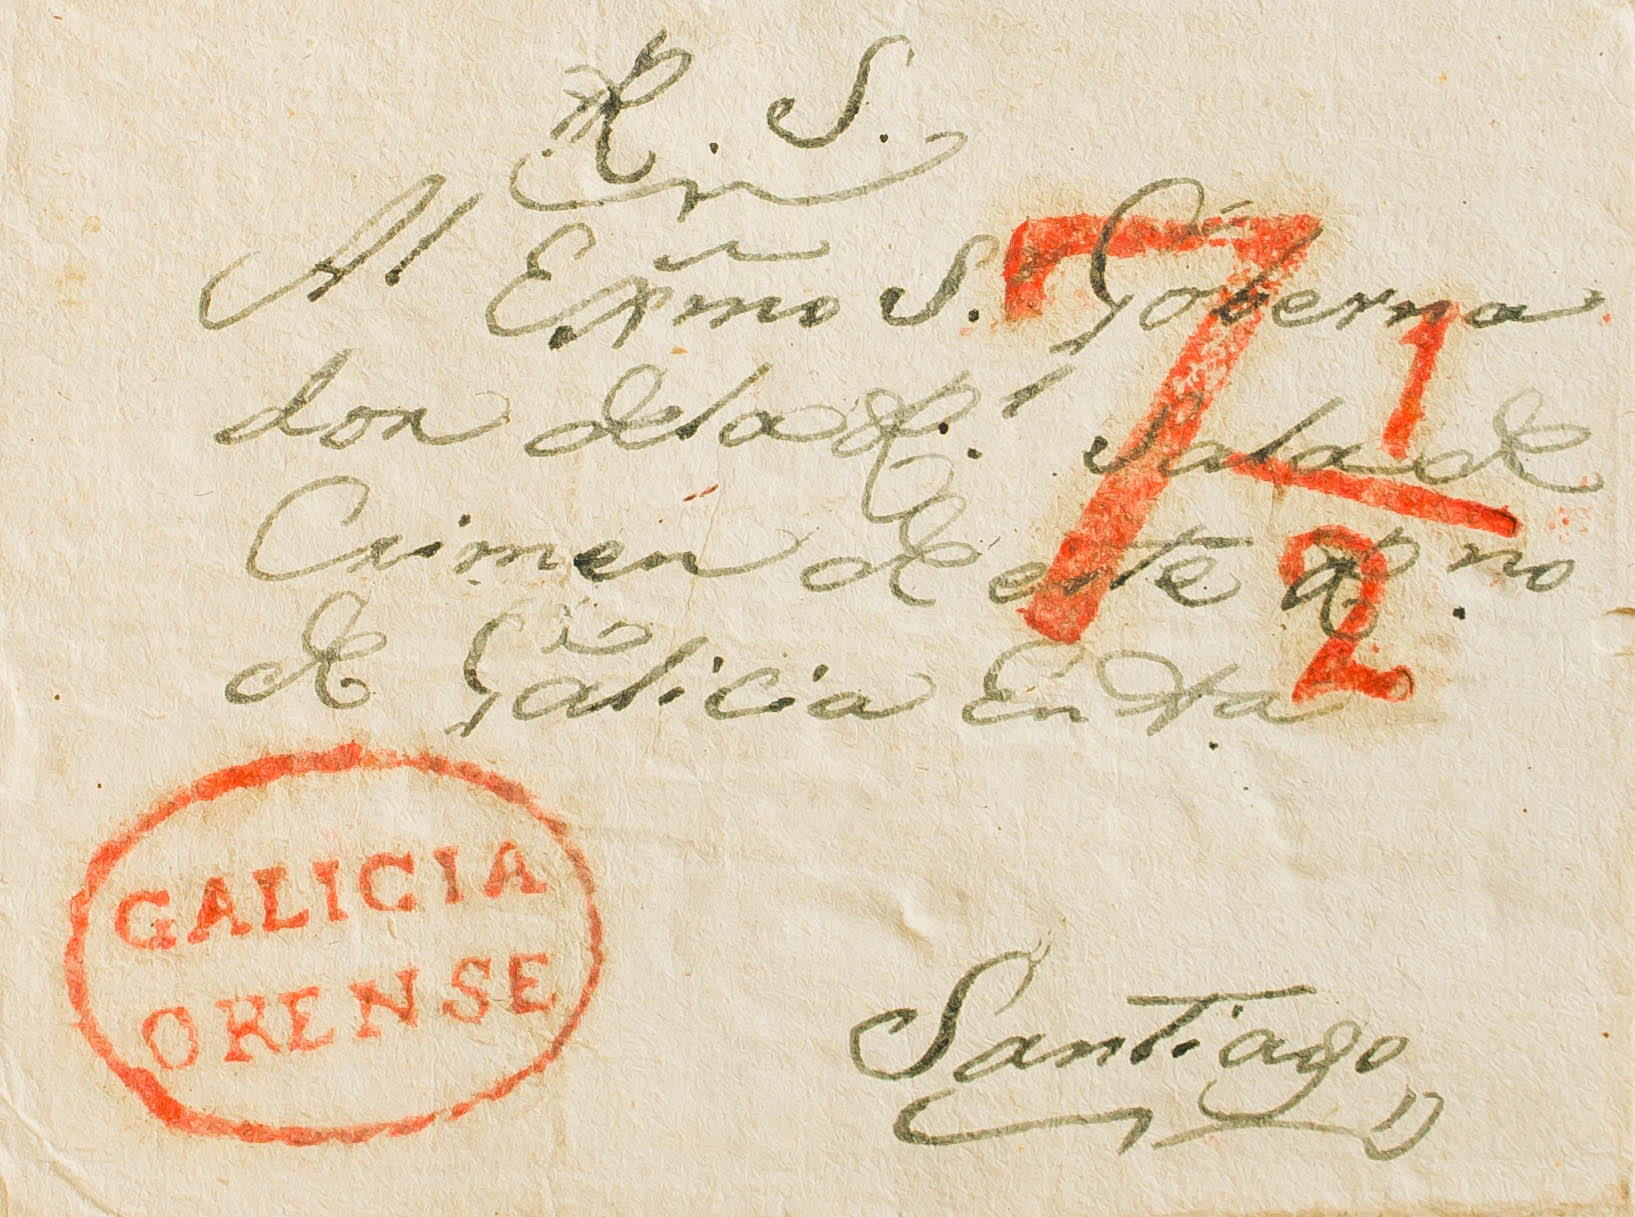 R. S.
Al Exmo S. Goberna
dor dela Rl. Sala de
Crimen de este R.no
de Galicia En
7 1/2
GALICIA
ORENSE
Santiago